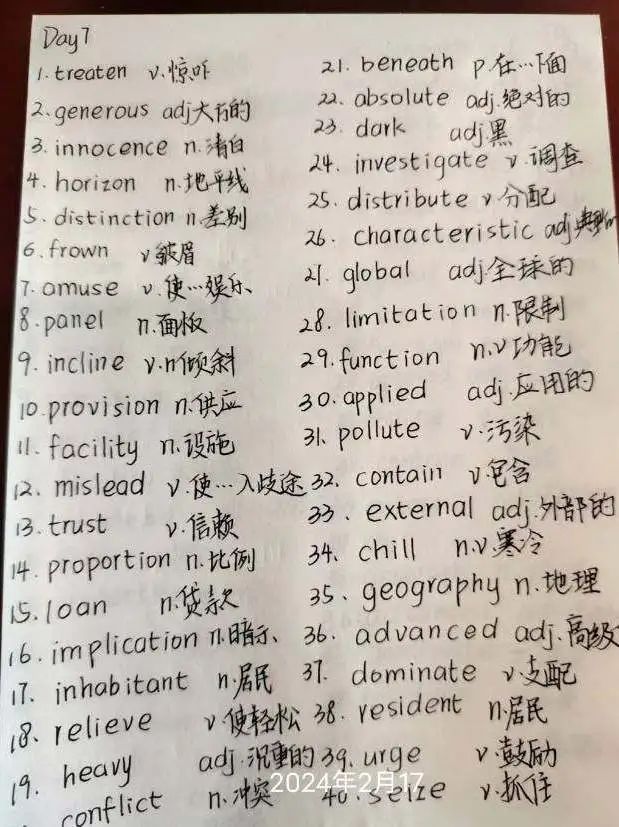 Day7
1. treaten v.惊吓
2. generous adj大方的
3. innocence n.清白
4. horizon n.地平线
5. distinction n.差别
6. frown v皱眉
7. amuse v.使…娱乐
8. panel n.面板
9. incline v.n倾斜
10. provision n.供应
11. facility n.设施
12. mislead v.使…入歧途
13. trust v.信赖
14. proportion n.比例
15. loan n.贷款
16. implication n.暗示
17. inhabitant n.居民
18. relieve v.使轻松
19. heavy adj.沉重的
conflict n.冲突
21. beneath p.在…下面
22. absolute adj.绝对的
23. dark adj.黑
24. investigate v.调查
25. distribute v分配
26. characteristic adj
27. global adj.全球的
28. limitation n.限制
29. function n.v功能
30. applied adj.应用的
31. pollute v.污染
32. contain v.包含
33. external adj.外部的
34. chill n.v.寒冷
35. geography n.地理
36. advanced adj.高级
37. dominate v.支配
38. resident n.居民
39. urge v.鼓励
40. seize v.抓住
2024年2月17